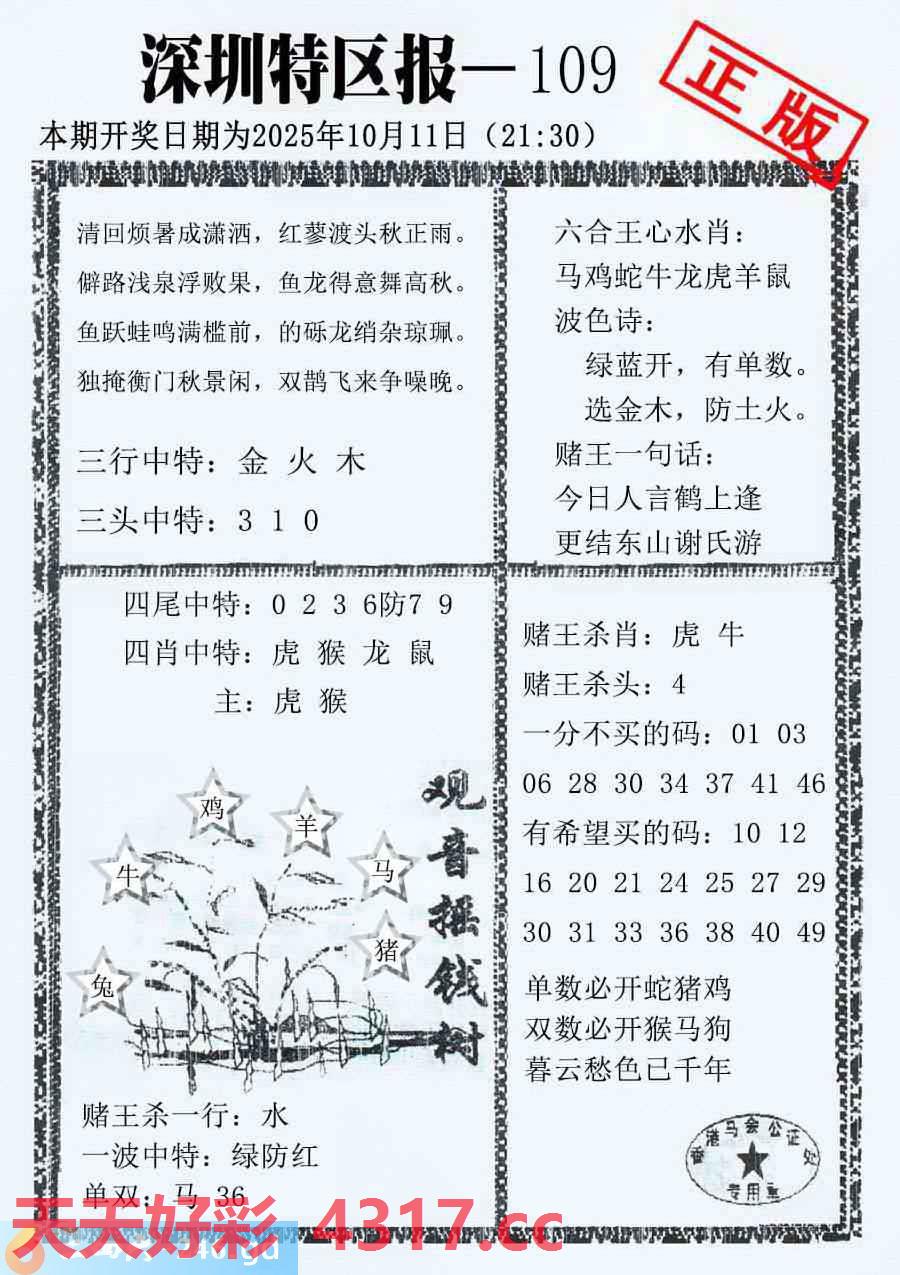 深圳特区报—109
正版
本期开奖日期为2025年10月11日（21:30）
清回烦暑成潇洒，红蓼渡头秋正雨。
僻路浅泉浮败果，鱼龙得意舞高秋。
鱼跃蛙鸣满槛前，的砾龙绡杂琼珮。
独掩衡门秋景闲，双鹊飞来争噪晚。
三行中特：金 火 木
三头中特：3 1 0
六合王心水肖：
马鸡蛇牛龙虎羊鼠
波色诗：
绿蓝开，有单数。
选金木，防土火。
赌王一句话：
今日人言鹤上逢
更结东山谢氏游
四尾中特：0 2 3 6防7 9
四肖中特：虎 猴 龙 鼠
主：虎 猴
鸡
羊
牛
马
猪
兔
观音摇钱树
赌王杀一行：水
一波中特：绿防红
单双：马 36
赌王杀肖：虎 牛
赌王杀头：4
一分不买的码：01 03
06 28 30 34 37 41 46
有希望买的码：10 12
16 20 21 24 25 27 29
30 31 33 36 38 40 49
单数必开蛇猪鸡
双数必开猴马狗
暮云愁色已千年
香港马会公证处
专用章
天天好彩 4317.cc